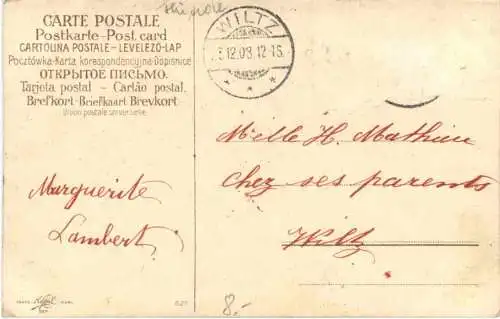 CARTE POSTALE
Postkarte-Post card
CARTOLINA POSTALE-LEVELEZÖ-LAP
Pocztówka-Karta korespondencyjna-Dopisnice
ОТКРЫТОЕ ПИСЬМО.
Tarjeta postal - Cartão postal.
Brefkort-Briefkaart Brevkort
Union postale universelle
WILTZ
3.12.03.12-1S.
Melle H. Mathieu
chez ses parents
Wiltz
Marguerite
Lambert
8.-